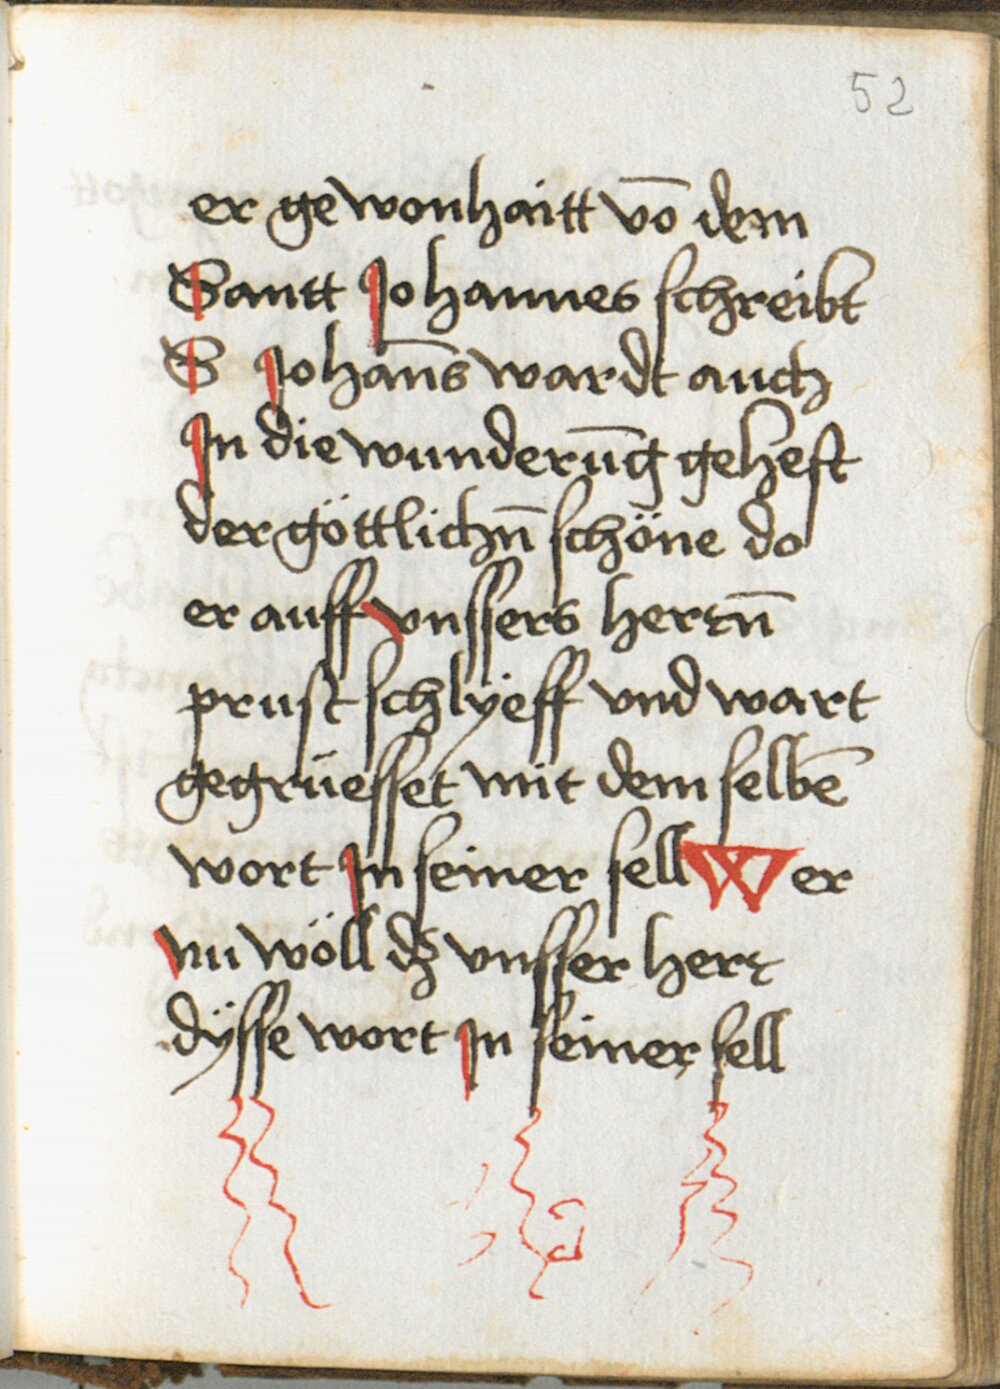 52
er gewonhaitt vō dem
Santt Johannes schreibt
S Johañs wardt auch
Jn die wunderūg geheft
der göttlichn̄ schöne do
er auff vnssers herrn̄
prust schlyeff vnd wart
gegrüesset mit dem selbē
wort Jn seiner sell Wer
nu wöll dz vnsser herr
dÿsse wort Jn seiner sell